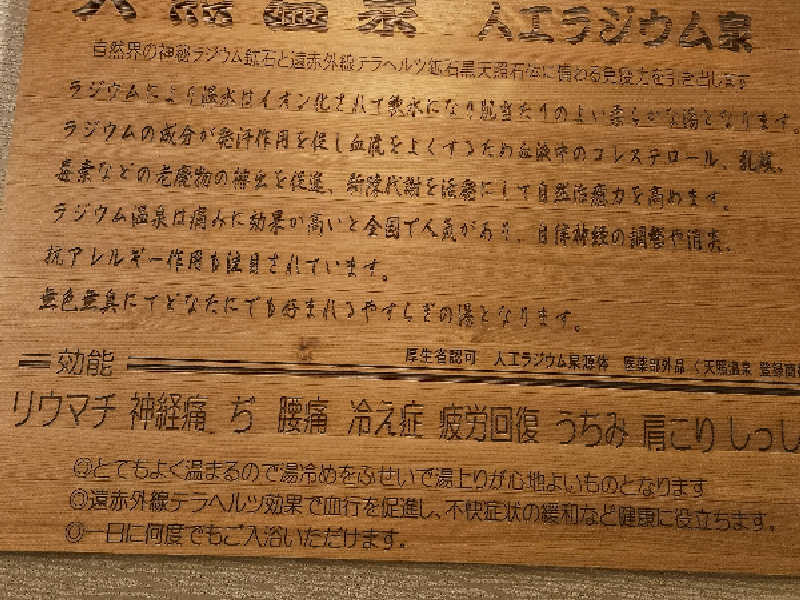 天照温泉 人工ラジウム泉
自然界の神秘ラジウム鉱石と遠赤外線テラヘルツ鉱石黒天照石体に備わる免疫力を引き出します
ラジウムにより温水はイオン化されて軟水になり肌当たりのよい柔らかな湯となります。
ラジウムの成分が発汗作用を促し血流をよくするため血液中のコレステロール、乳酸、
毒素などの老廃物の排出を促進、新陳代謝を活発にして自然治癒力を高めます。
ラジウム温泉は痛みに効果が高いと全国で人気があり、自律神経の調整や消炎、
抗アレルギー作用も注目されています。
無色無臭にてどなたにでも好まれるやすらぎの湯となります。
効能
厚生省認可 人工ラジウム泉源体 医薬部外品 〈天照温泉 登録商
リウマチ 神経痛 ぢ 腰痛 冷え症 疲労回復 うちみ 肩こり しっし
◎とてもよく温まるので湯冷めをふせいで湯上りが心地よいものとなります
◎遠赤外線テラヘルツ効果で血行を促進し、不快症状の緩和など健康に役立ちます。
◎一日に何度でもご入浴いただけます。